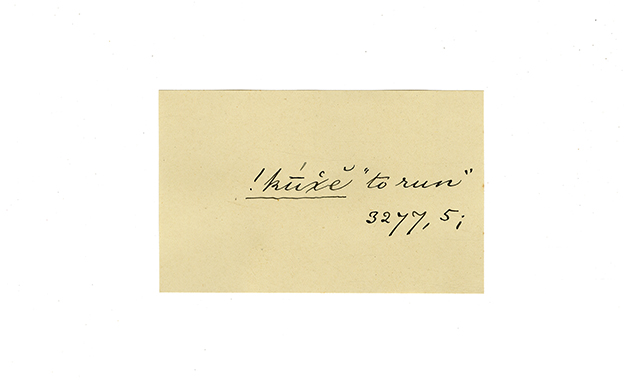 !kū́xĕ "to run"
3277, 5;